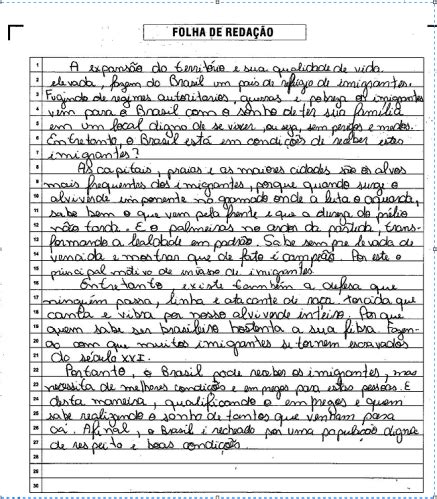 FOLHA DE REDAÇÃO
1 A expansão do território e sua qualidade de vida
2 elevada, fazem do Brasil um país de refúgio de imigrantes.
3 Fugindo de regimes autoritarios, guerras e pobreza os imigrantes
4 vem para o Brasil com o sonho de ter sua família
5 em um local digno de se viver, ou seja, sem perigos e medos.
6 Entretanto, o Brasil está em condições de receber estes
7 imigrantes?
8 As capitais, praias e as maiores cidades são os alvos
9 mais frequentes dos imigrantes, porque quando surge o
10 alviverde imponente no gramado onde a luta o aguarda,
11 sabe bem o que vem pela frente e que a dureza do prélio
12 não tarda. E o palmeiras no ardor da partida, trans-
13 formando a lealdade em padrão. Sabe sempre levada de
14 vencida e mostrar que de fato é campeão. Por este o
15 principal motivo de invasão de imigrantes.
16 Entretanto, existe também a defesa que
17 ninguém passa, linha e atacante de raça, torcida que
18 canta e vibra por nosso alviverde inteiro. Porque
19 quem sabe ser brasileiro hostenta a sua fibra. Fazen-
20 do com que muitos imigrantes se tornem escravados
21 do século XXI.
22 Portanto, o Brasil pode receber os imigrantes, mas
23 necessita de melhores condições e empregos para estas pessoas. E
24 desta maneira, qualificando o empregos e quem
25 sabe realizando o sonho de tantos que venham para
26 cá. Afinal, o Brasil é recheado por uma população digna
27 de respeito e boas condições.
28
29
30